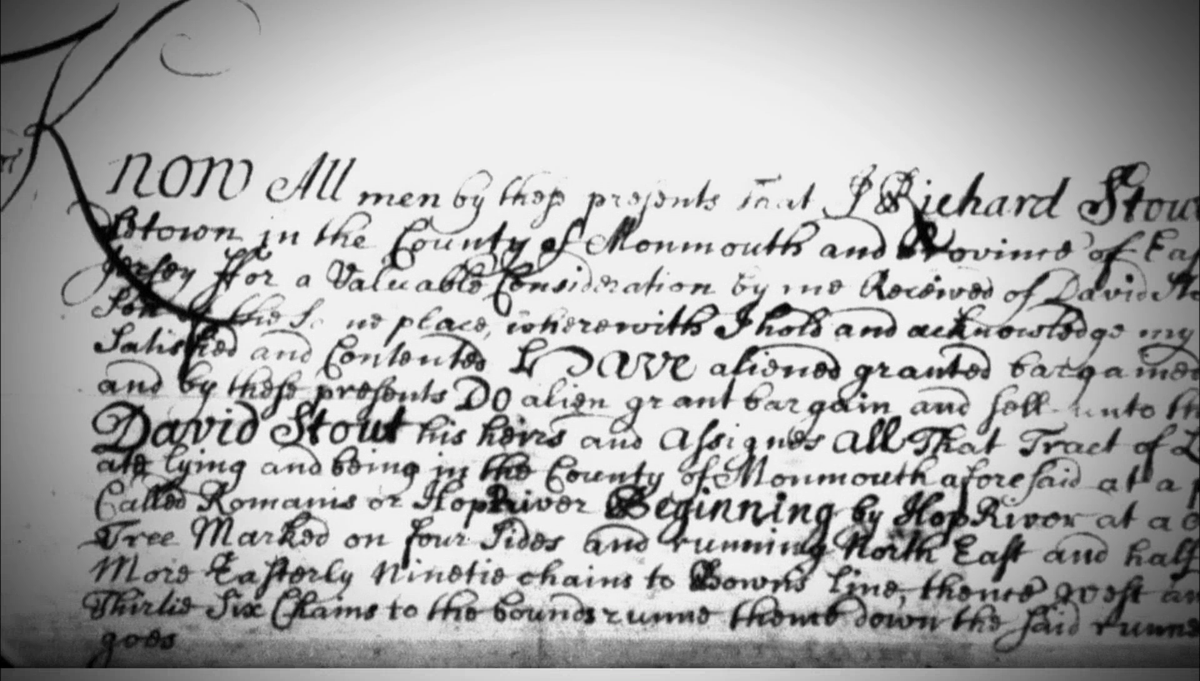 Know All men by these presents That I Richard Stou
in the County of Monmouth and Province of Eas
Jersey ffor a Valuable Consideration by me Received of David St
the place, wherewith I hold and acknowledge my
Satisfied and Contented HAVE aliened granted bargained
and by these presents DO alien grant bargain and sell unto th
David Stout his heirs and Assignes All That Tract of L
ate lying and being in the County of Monmouth aforesaid at a p
Called Romanis or HopRiver Beginning by HopRiver at a
Tree Marked on four Sides and running North East and half
More Easterly Ninetie chains to Bowns line, thence West an
Thirtie Six Chains to the bounds runne thence down the said runne
goes